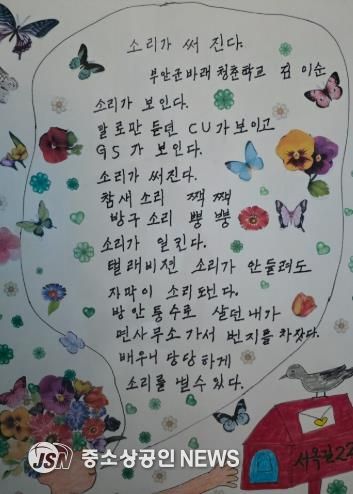 소리가 써 진다.
부안군바래 청춘학교 김 이순
소리가 보인다.
말로만 듣던 CU가 보이고
GS 가 보인다.
소리가 써진다.
참새 소리 짹 짹
방구 소리 뿡 뿡
소리가 읽킨다.
탤래비젼 소리가 안들려도
자막이 소리된다.
방안퉁수로 살던 내가
면사무소 가서 번지를 차잣다.
배우니 당당하게
소리를 낼수 있다.
서옥길 22
JSN 중소상공인 NEWS